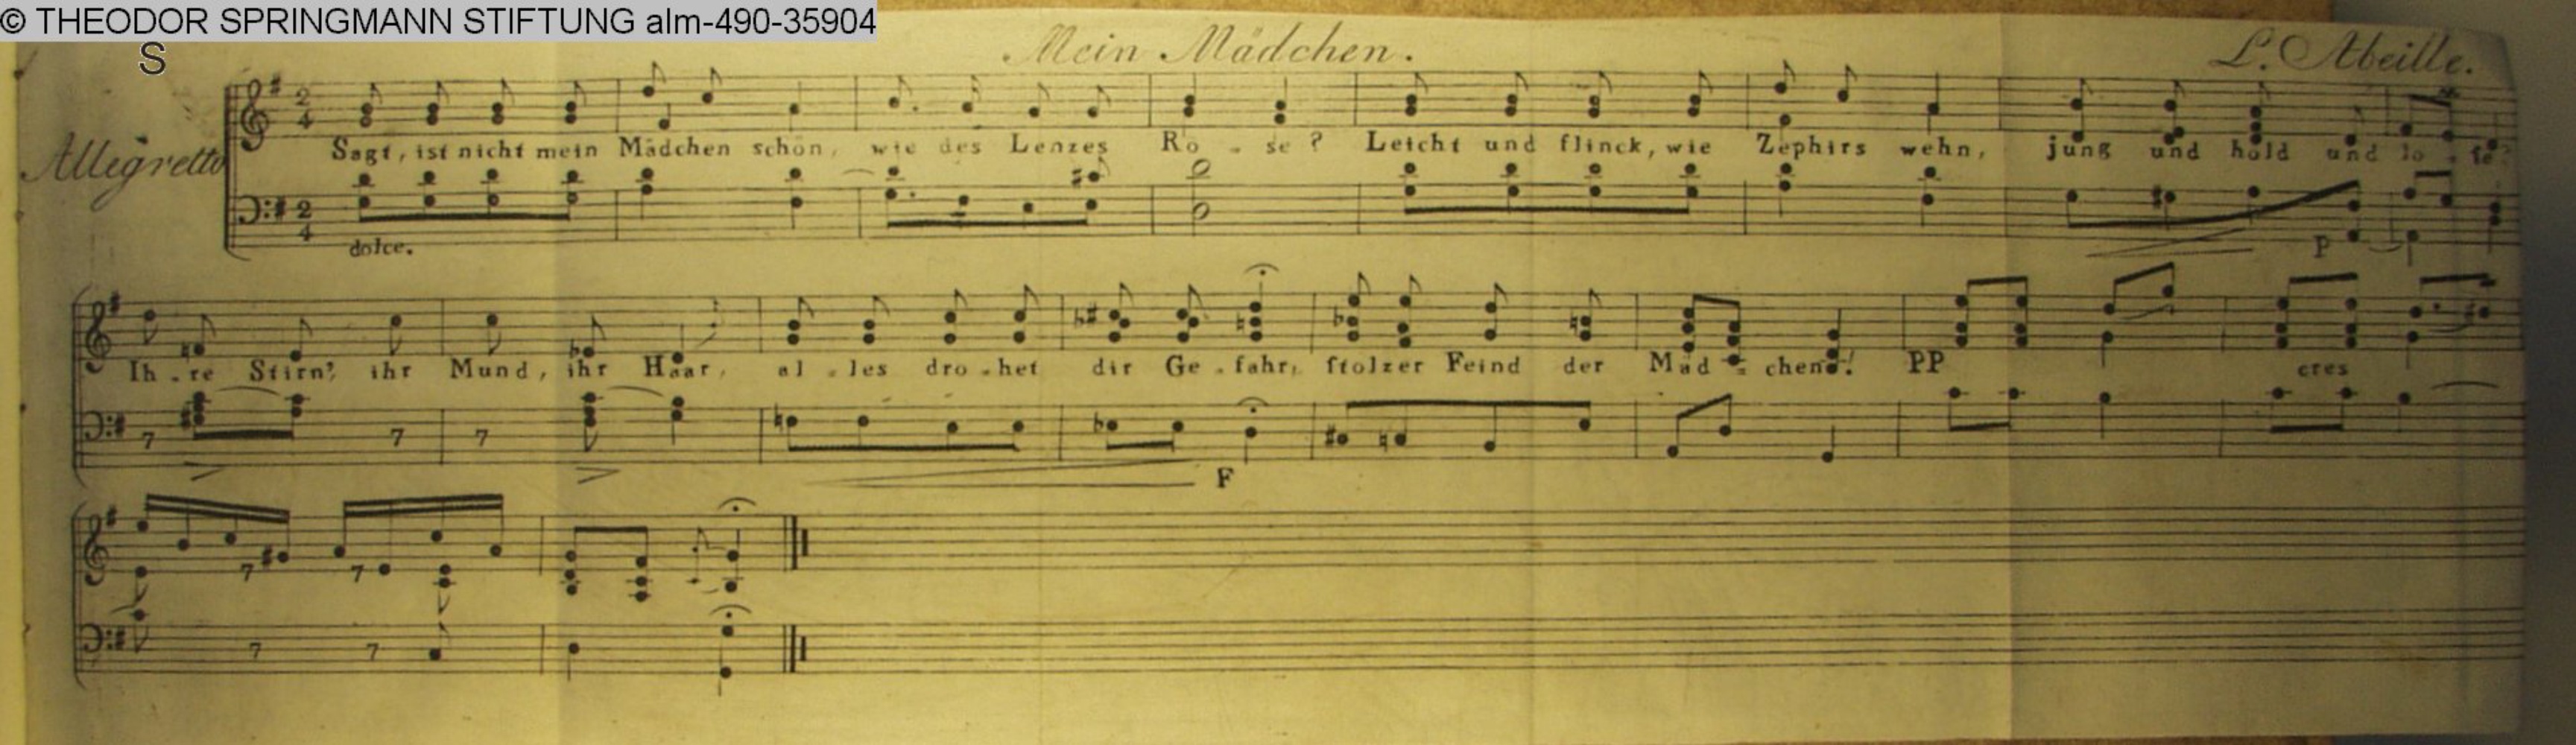 © THEODOR SPRINGMANN STIFTUNG alm-490-35904
S
Mein Mädchen.
L. Abeille.
Allegretto
2 4
Sagt, ist nicht mein Mädchen schön, wie des Lenzes Ro - se? Leicht und flinck, wie Zephirs wehn, jung und hold und lo - se?
2 4
dolce.
P
Ih - re Stirn', ihr Mund, ihr Haar, al - les dro - het dir Ge - fahr, stolzer Feind der Mäd = chen! PP cres
F